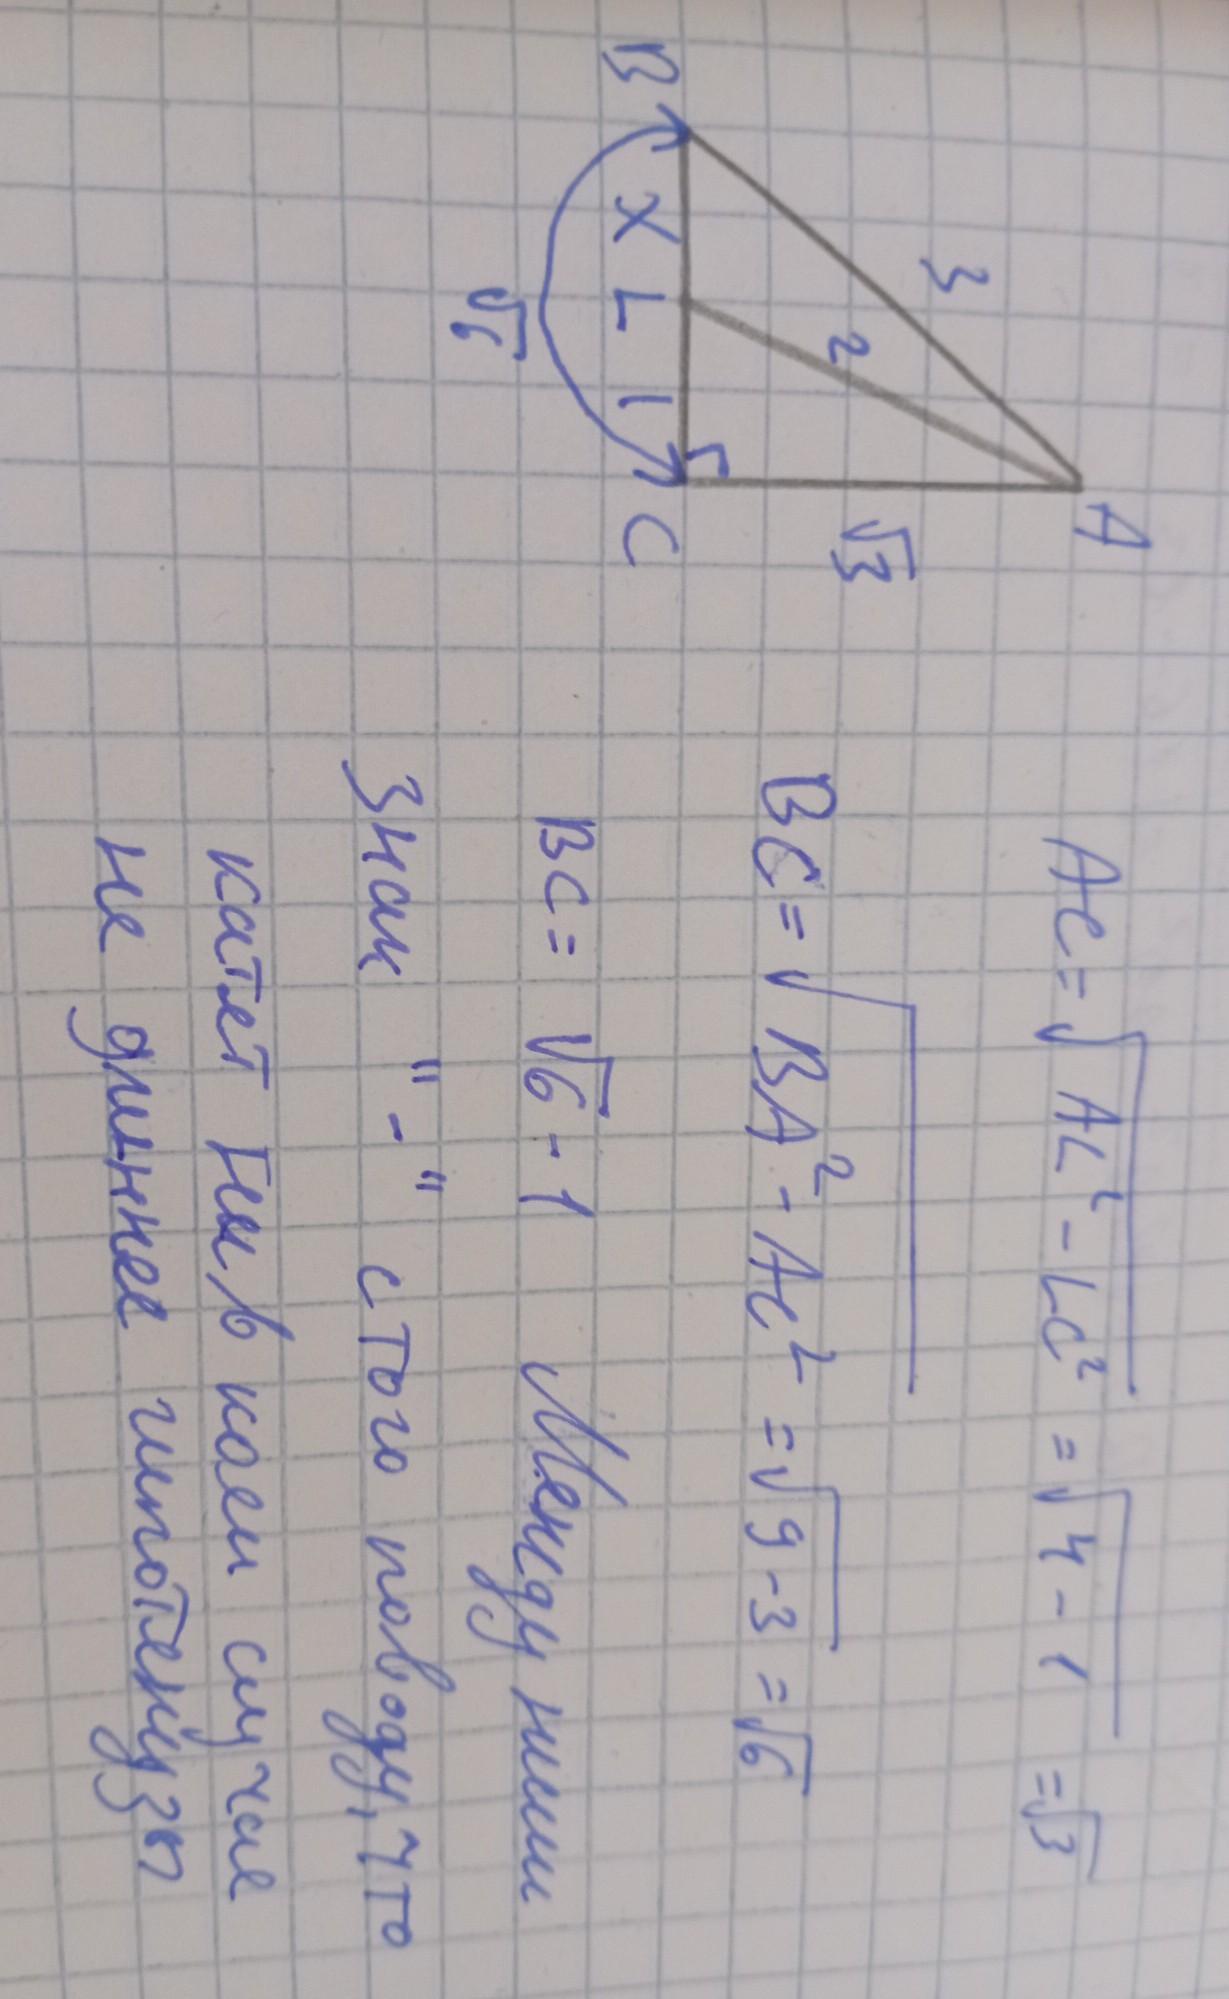 A
3
2
√3
B X L 1 C
√6
AC = √AL² - LC² = √4 - 1 = √3
BC = √BA² - AC² = √9-3 = √6
BC = √6 - 1 Между ними
Знак "-" с того поводу, что
катет ни в коем случае
не длиннее гипотенузы